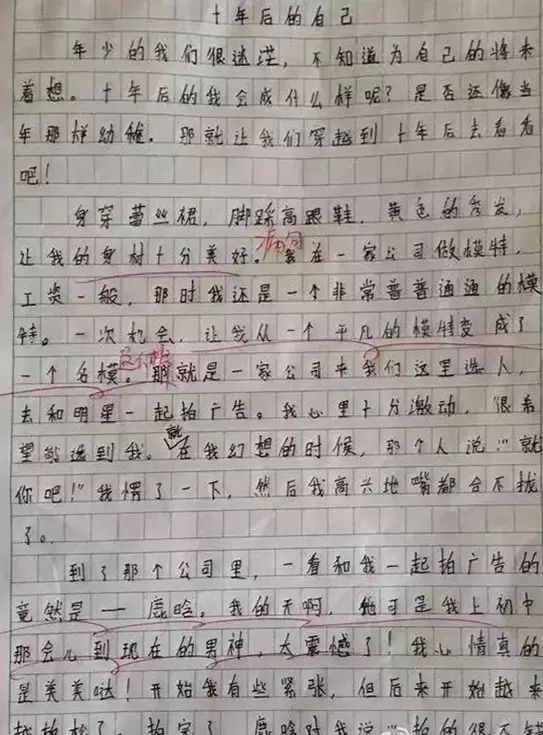 十年后的自己
年少的我们很迷茫，不知道为自己的将来
着想。十年后的我会成什么样呢？是否还像当
年那样幼稚。那就让我们穿越到十年后去看看
吧！
身穿蕾丝裙，脚踩高跟鞋，黄色的秀发，
让我的身材十分美好。病句我在一家公司做模特，
工资一般，那时我还是一个非常普普通通的模
特。一次机会，让我从一个平凡的模特变成了
一个名模。那就是一家公司来我们这里选人，
去和明星一起拍广告。我心里十分激动，很希
望能选到我。就在我幻想的时候，那个人说：“就
你吧！”我愣了一下，然后我高兴地嘴都合不拢
了。
到了那个公司里，一看和我一起拍广告的
竟然是——鹿晗。我的天啊，他可是我上初中
那会儿到现在的男神，太震憾了！我心情真的
是美美哒！开始我有些紧张，但后来开始越来
越放松了。拍完了，鹿晗对我说：“拍的很不错